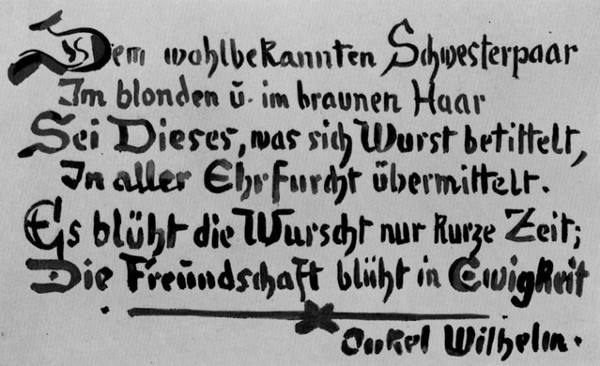 Dem wohlbekannten Schwesterpaar
Im blonden ü. im braunen Haar
Sei Dieses, was sich Wurst betittelt,
In aller Ehrfurcht übermittelt.
Es blüht die Wurscht nur kurze Zeit;
Die Freundschaft blüht in Ewigkeit
Onkel Wilhelm.